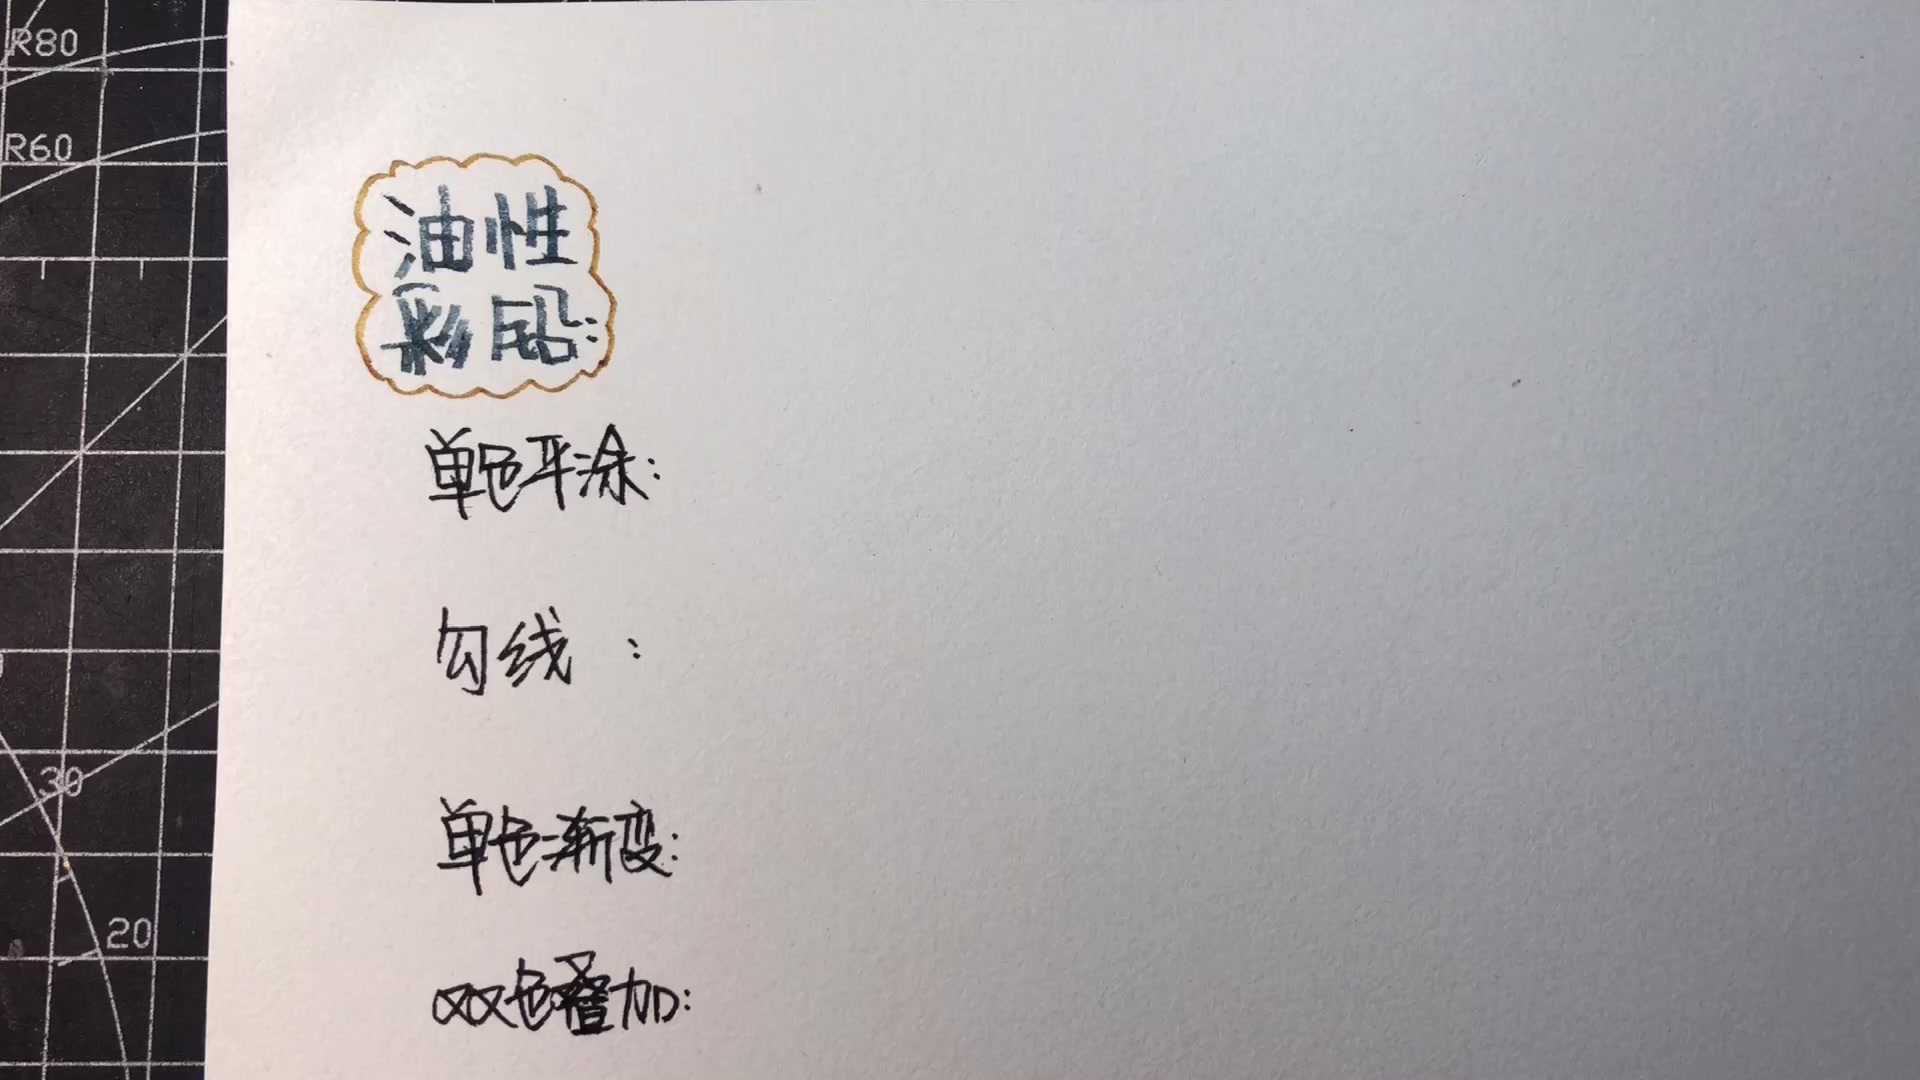 R80
R60
30
20
油性
彩铅:
单色平涂:
勾线 :
单色渐变:
双色叠加: